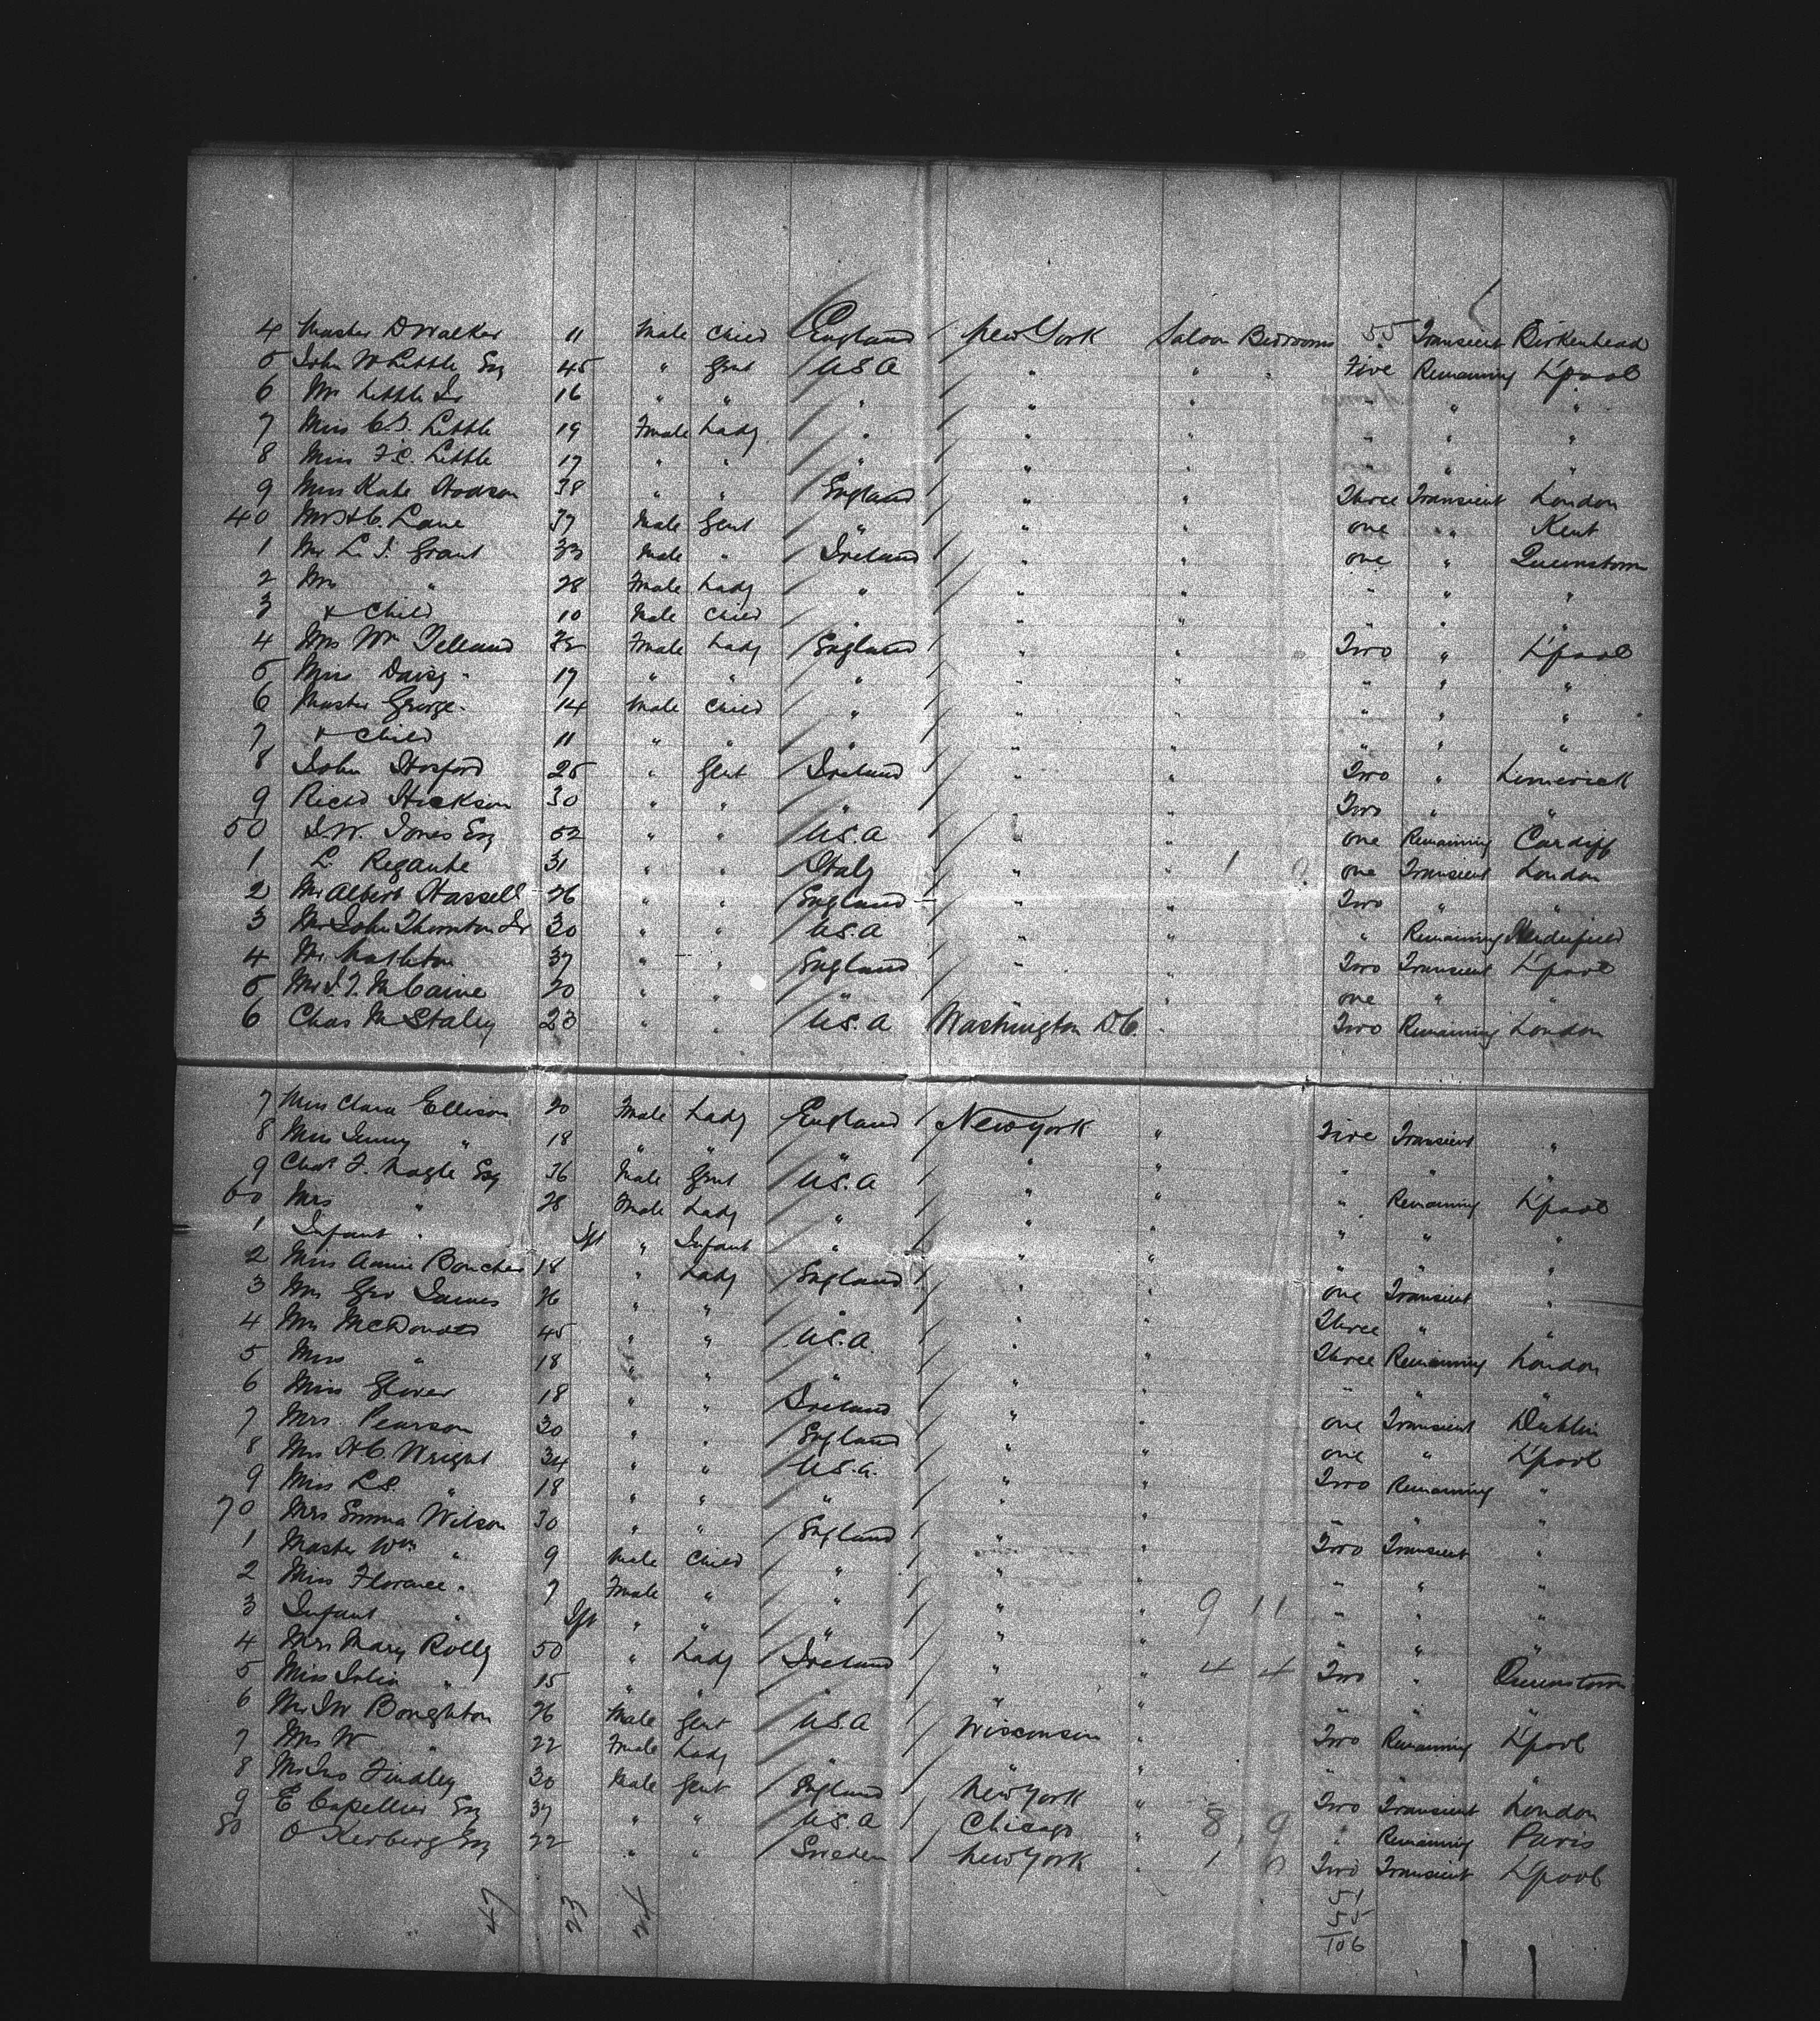 4 Master D Walker 11 Male Child England New York Saloon Bedrooms 55 Transient Birkenhead
5 John W Little Esq 45 " Gent U.S.A " " " Five Remaining L'pool
6 Mr Little Jr 16 " " " " " " " "
7 Miss C.S. Little 19 Fmale Lady " " " " " "
8 Miss F.C. Little 17 " " " " " " " "
9 Miss Kate Hodson 38 " " England " " Three Transient London
40 Mr H.C. Lane 37 Male Gent " " " one " Kent
1 Mr L.J. Grant 33 Male " Ireland " " one " Queenstown
2 Mrs " 28 Fmale Lady " " " " " "
3 & Child 10 Male Child " " " " " "
4 Mrs Wm Telland 32 Fmale Lady England " " Two " L'pool
5 Miss Daisy " 17 " " " " " " " "
6 Master George " 14 Male Child " " " " " "
7 & Child 11 " " " " " " " "
8 John Hosford 25 " Gent Ireland " " Two " Limerick
9 Richd Hickson 30 " " " " " Two " "
50 J.W. Jones Esq 52 " " U.S.A " " one Remaining Cardiff
1 L. Regante 31 " " Italy " " 1 one Transient London
2 Mr Albert Hassell 26 " " England " " Two " "
3 Mr John Thornton Jr 30 " " U.S.A " " " Remaining
4 Mr 37 " " England " " Two Transient L'pool
5 Mr J.J. McCaine 20 " " " " " one " "
6 Chas M Staley 23 " " U.S.A Washington D.C. " Two Remaining London
7 Miss Clara Ellison 20 Fmale Lady England New York " Five Transient "
8 Miss Jenny " 18 " " " " " " " "
9 Chas F. Nagle Esq 36 Male Gent U.S.A " " " Remaining L'pool
60 Mrs " 28 Fmale Lady " " " " " "
1 Infant " Ift " Infant " " " " " "
2 Miss Annie Boucher 18 " Lady England " " one Transient "
3 Mrs Geo James 26 " " " " " Three " "
4 Mrs McDonald 45 " " U.S.A. " " Three Remaining London
5 Miss " 18 " " " " " " " "
6 Miss Glover 18 " " Ireland " " one Transient Dublin
7 Mrs. Pearson 30 " " England " " one " L'pool
8 Mrs H.C. Wright 34 " " U.S.A. " " Two Remaining "
9 Miss L.S. " 18 " " " " " " " "
70 Mrs Emma Wilson 30 " " England " " Two Transient "
1 Master Wm " 9 Male Child " " " " " "
2 Miss Florence " 7 Fmale " " " " 9 11 " " "
3 Infant " Ift " " " " " " " "
4 Mrs Mary Rolly 50 " Lady Ireland " " 4 4 Two " Queenstown
5 Miss Julia " 15 " " " " " " " "
6 Mr J.W Boughton 26 Male Gent U.S.A Wisconsin " Two Remaining L'pool
7 Mrs W " 22 Fmale Lady " " " " " "
8 Mr Jno Findley 30 Male Gent England New York " Two Transient London
9 E Capellier Esq 37 " " U.S.A Chicago " 8 9 " Remaining Paris
80 O Kerberg Esq 22 " " Sweden New York " 1 0 Two Transient L'pool
47 23 24 51
55
106